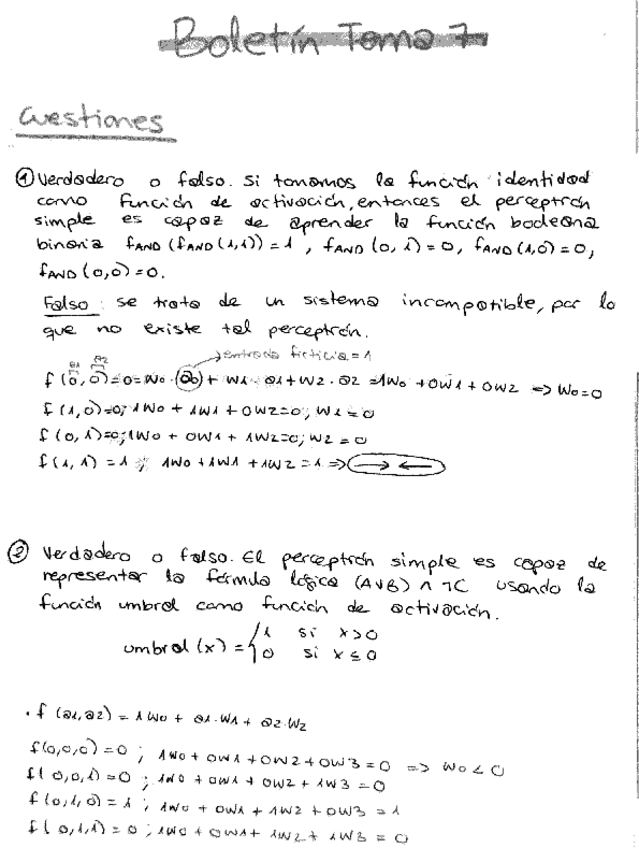 Boletín Tema 7
Cuestiones
① Verdadero o falso. Si tomamos la función identidad
como función de activación, entonces el perceptrón
simple es capaz de aprender la función booleana
binaria fAND (fAND (1,1)) = 1, fAND (0,1) = 0, fAND (1,0) = 0,
fAND (0,0) = 0.
Falso: se trata de un sistema incompatible, por lo
que no existe tal perceptrón.
a1 a2 → entrada ficticia = 1
f (0,0) = 0 = w0 · a0 + w1 · a1 + w2 · a2 = 1w0 + 0w1 + 0w2 => w0 = 0
f (1,0) = 0; 1w0 + 1w1 + 0w2 = 0; w1 = 0
f (0,1) = 0; 1w0 + 0w1 + 1w2 = 0; w2 = 0
f (1,1) = 1; 1w0 + 1w1 + 1w2 = 1 => →←
② Verdadero o falso. El perceptrón simple es capaz de
representar la fórmula lógica (A∨B) ∧ ¬C usando la
función umbral como función de activación.
umbral (x) = { 1 si x > 0
0 si x ≤ 0
· f (a1, a2) = 1w0 + a1·w1 + a2·w2
f(0,0,0) = 0; 1w0 + 0w1 + 0w2 + 0w3 = 0 => w0 < 0
f(0,0,1) = 0; 1w0 + 0w1 + 0w2 + 1w3 = 0
f(0,1,0) = 1; 1w0 + 0w1 + 1w2 + 0w3 = 1
f(0,1,1) = 0; 1w0 + 0w1 + 1w2 + 1w3 = 0